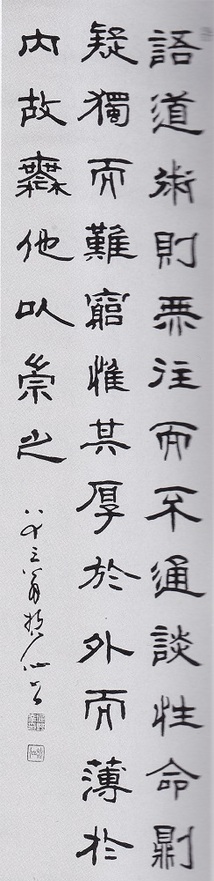 語道術則無往而不通談性命則
疑獨而難窮惟其厚於外而薄於
內故無他以崇之
八十三翁